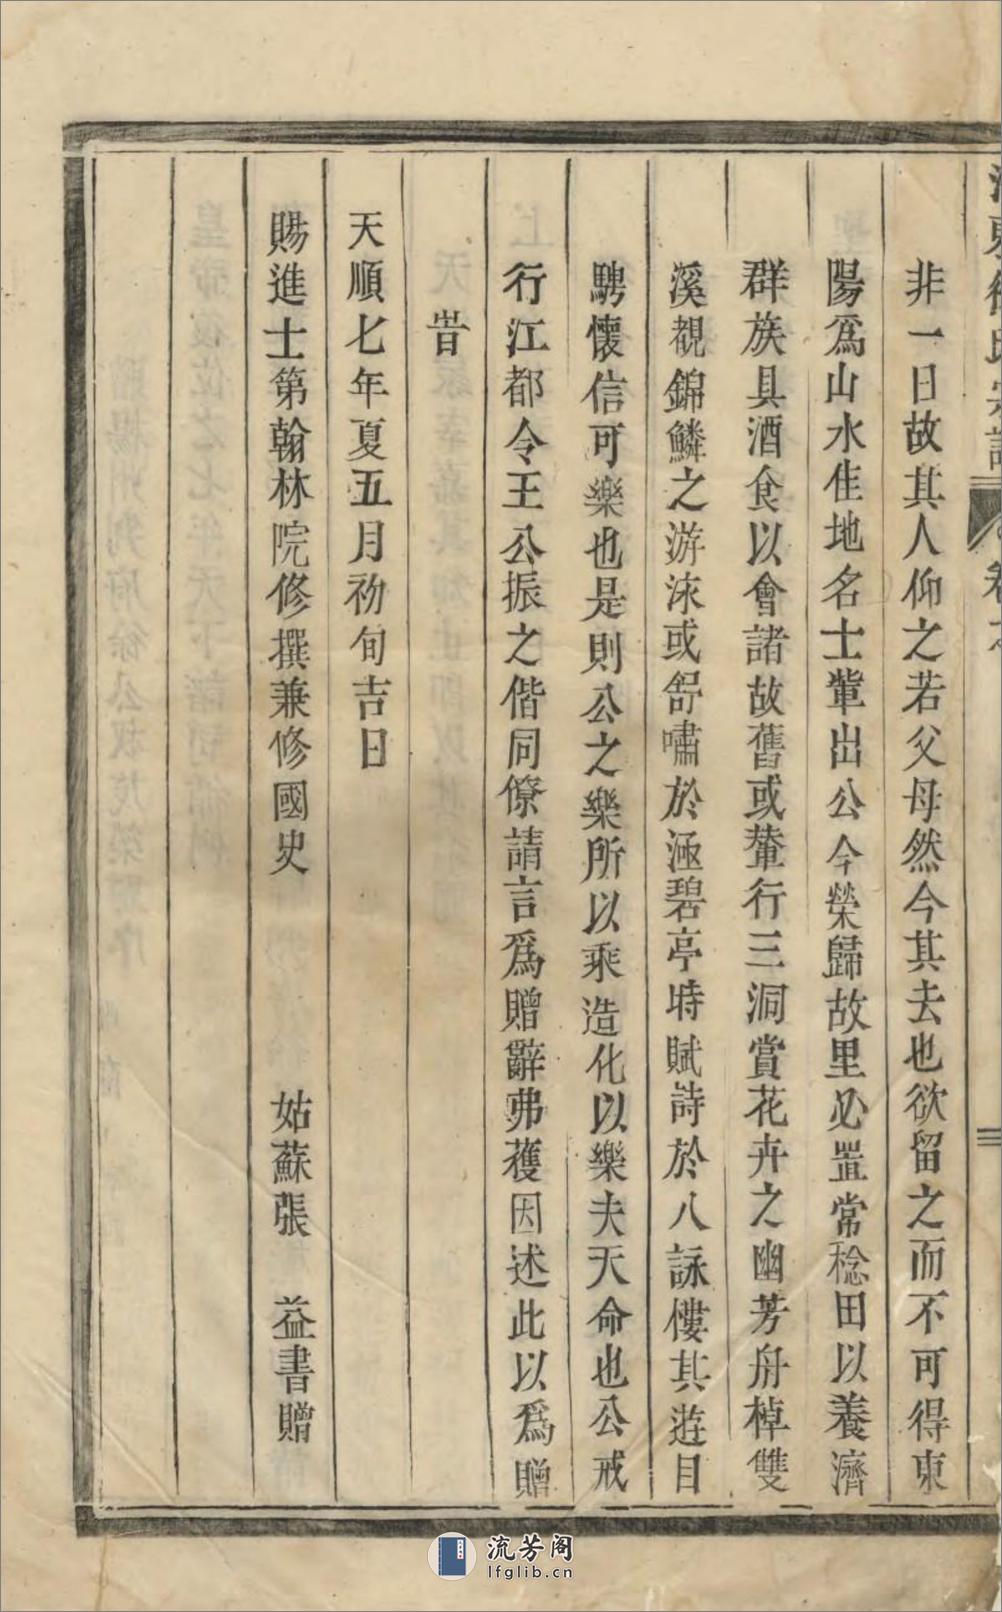 非一日故其人仰之若父母然今其去也欲留之而不可得東
陽爲山水佳地名士輩出公今榮歸故里必置常稔田以養濟
群族具酒食以會諸故舊或輦行三洞賞花卉之幽芳舟棹雙
溪覩錦鱗之游泳或舒嘯於涵碧亭時賦詩於八詠樓其遊目
騁懷信可樂也是則公之樂所以乘造化以樂夫天命也公戒
行江都令王公振之偕同僚請言爲贈辭弗獲因述此以爲贈
旹
天順七年夏五月初旬吉日
賜進士第翰林院修撰兼修國史　姑蘇張　益書贈
流芳阁
lfglib.cn